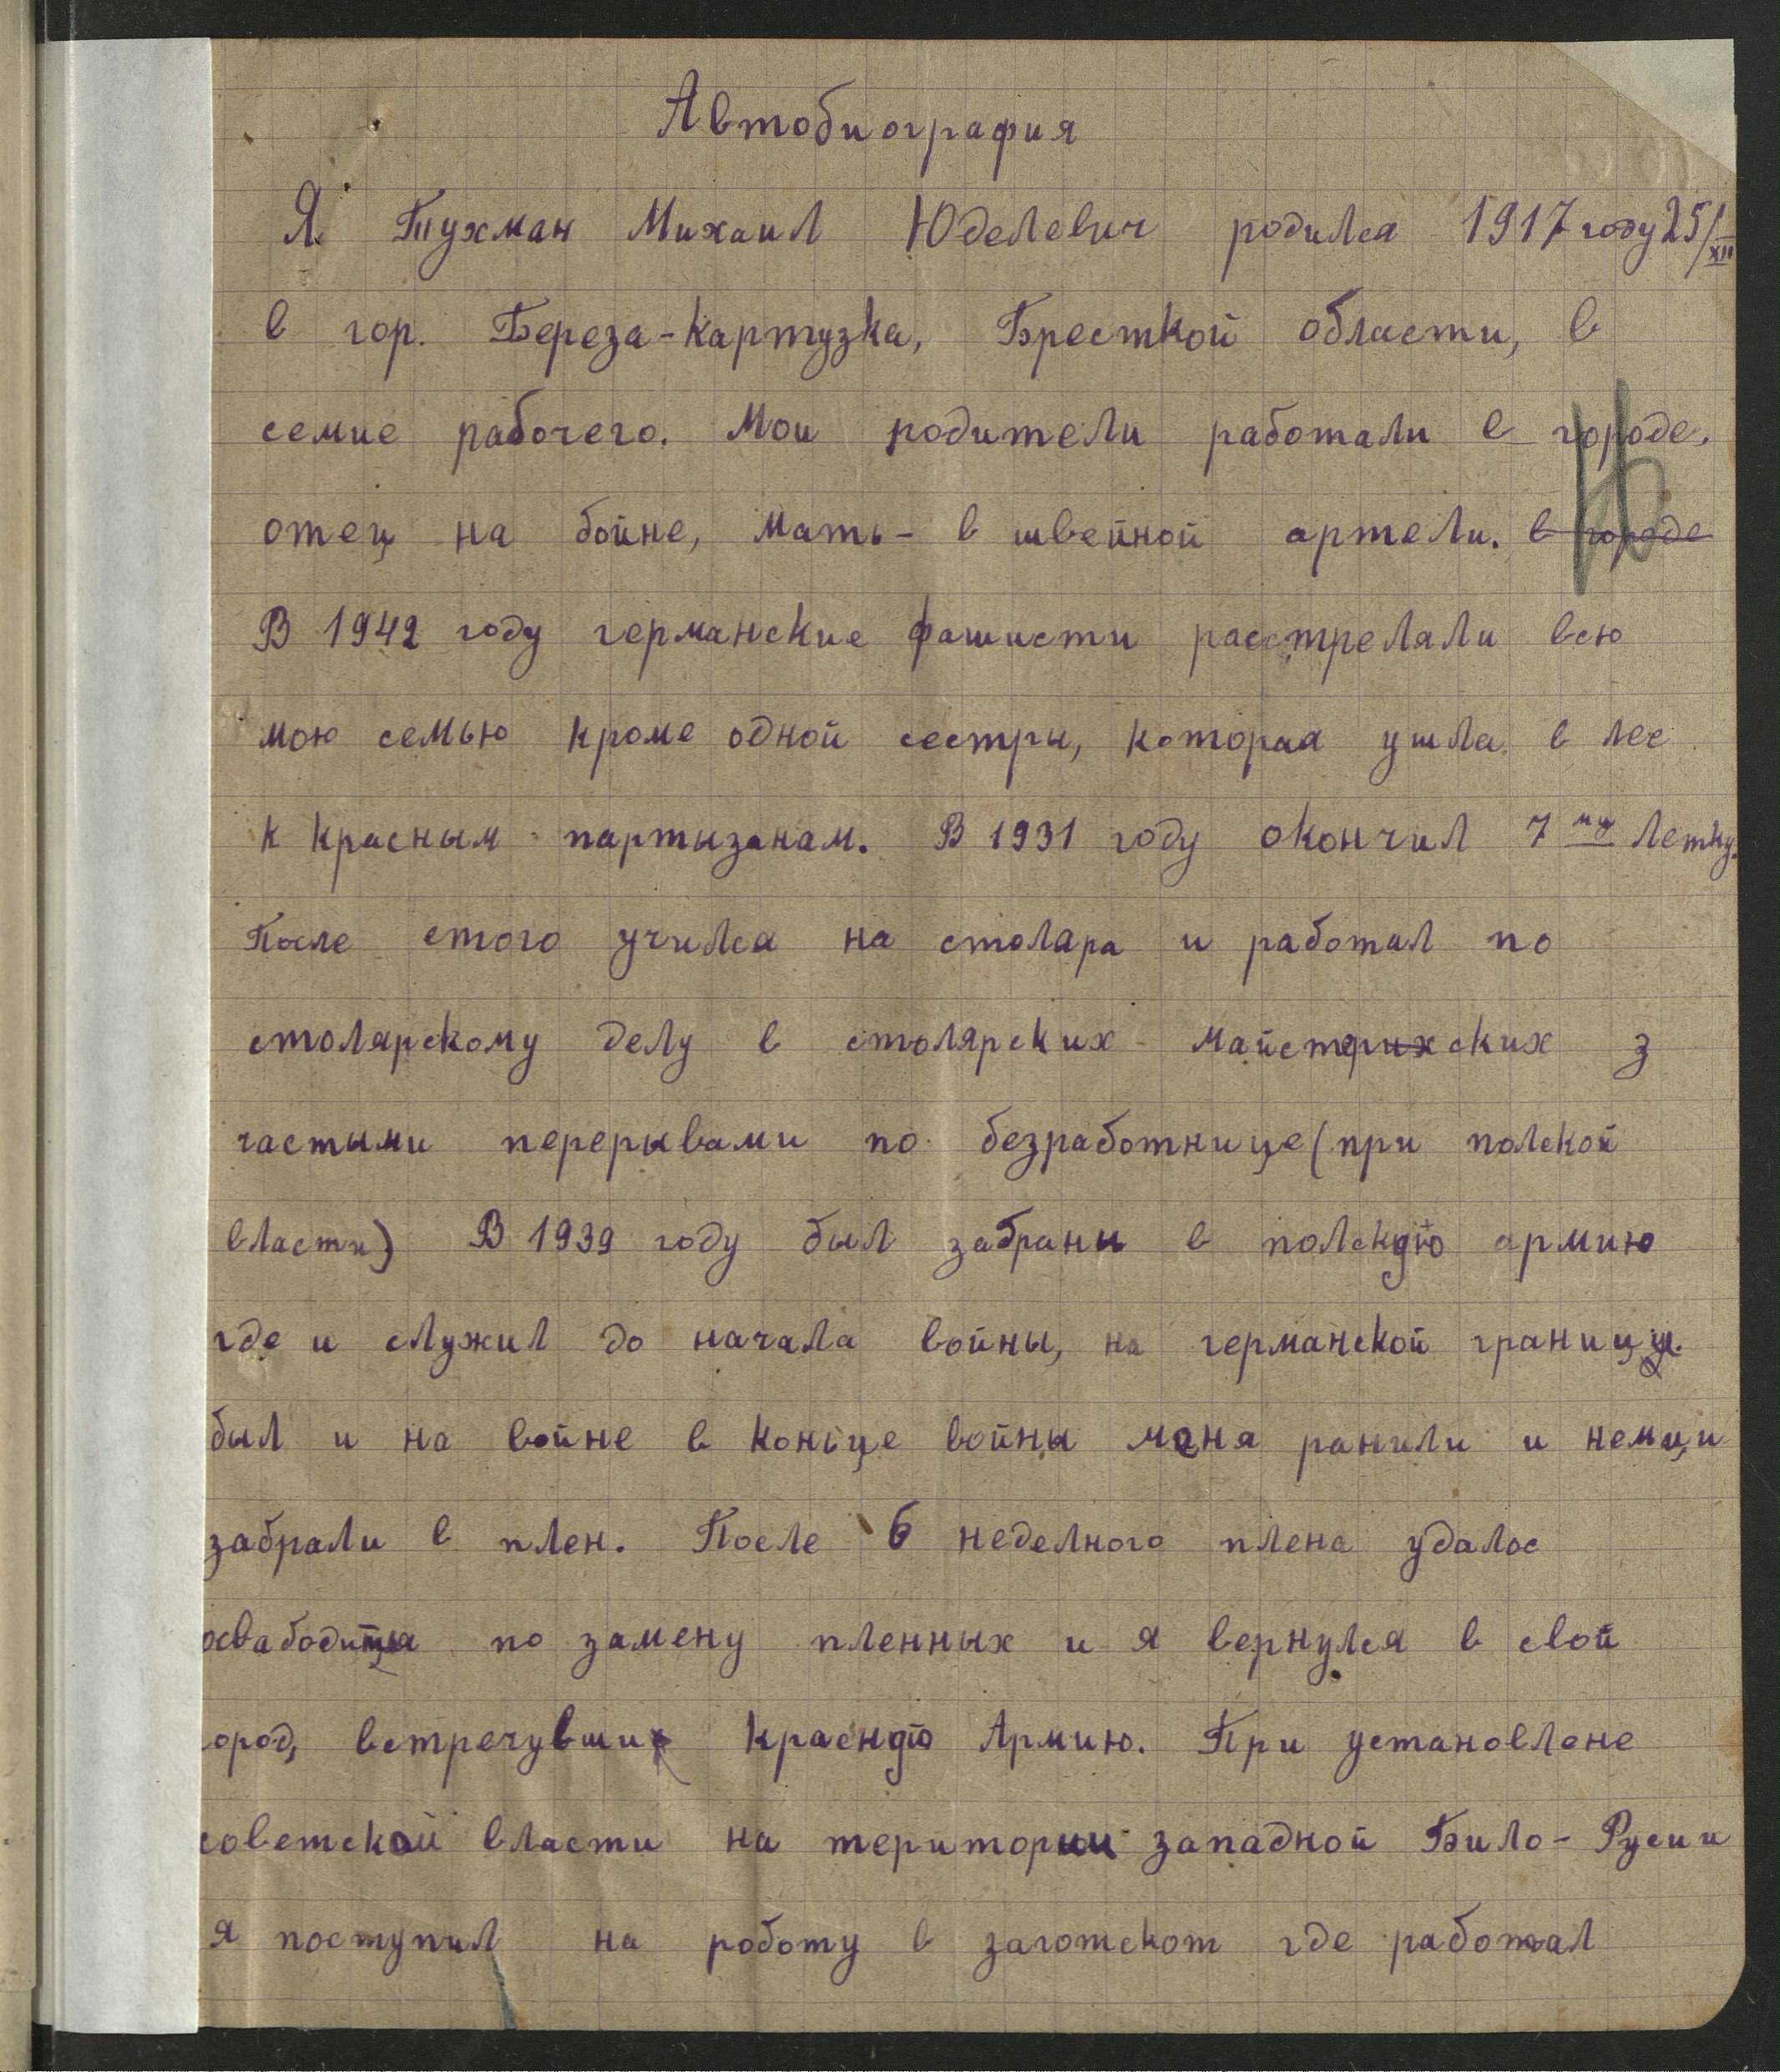 Автобиография
Я Тухман Михаил Юделевич родился 1917 году 25/XII
в гор. Береза-Картузка, Бресткой области, в
семие рабочего. Мои родители работали в городе,
отец на бойне, мать - в швейной артели. в городе
В 1942 году германские фашисти расстреляли всю
мою семью кроме одной сестры, которая ушла в лес
к красным партызанам. В 1931 году окончил 7 ми летку.
После етого учился на столяра и работал по
столярскому делу в столярских майстерихских з
частыми перерывами по безработнице (при полской
власти) В 1939 году был забраны в полскую армию
где и служил до начала войны, на германской границы.
был и на войне в коньце войны меня ранили и немци
забрали в плен. После 6 неделного плена удалос
освабодится по замену пленных и я вернулся в свой
город, встречувши Красную Армию. При установлене
советской власти на територии западной Било-Русии
я поступил на роботу в заготскот где работал